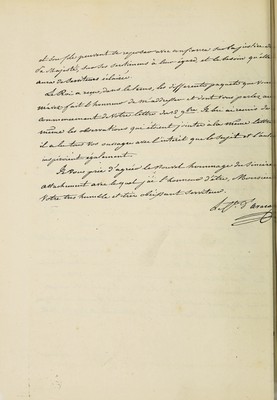 et son fils peuvent se reposer avec confiance sur la justice de
Sa Majesté, sur ses sentimens à leur égard et le besoin qu'elle
aura de serviteurs éclairés.
Le Roi a reçu, dans le tems, les différents paquets que vous
m'avez fait l'honneur de m'adresser et dont vous parlez au
commencement de votre lettre du 8 9bre. Je lui ai remis de
même les observations qui étaient jointes à la même lettre
il a lu tous vos ouvrages avec l'intérêt que le sujet et l'auteur
inspiroient également.
Je vous prie d'agréer le nouvel hommage du sincère
attachement avec lequel j'ai l'honneur d'être, Monsieur
Votre très humble et très obéissant serviteur.
Le